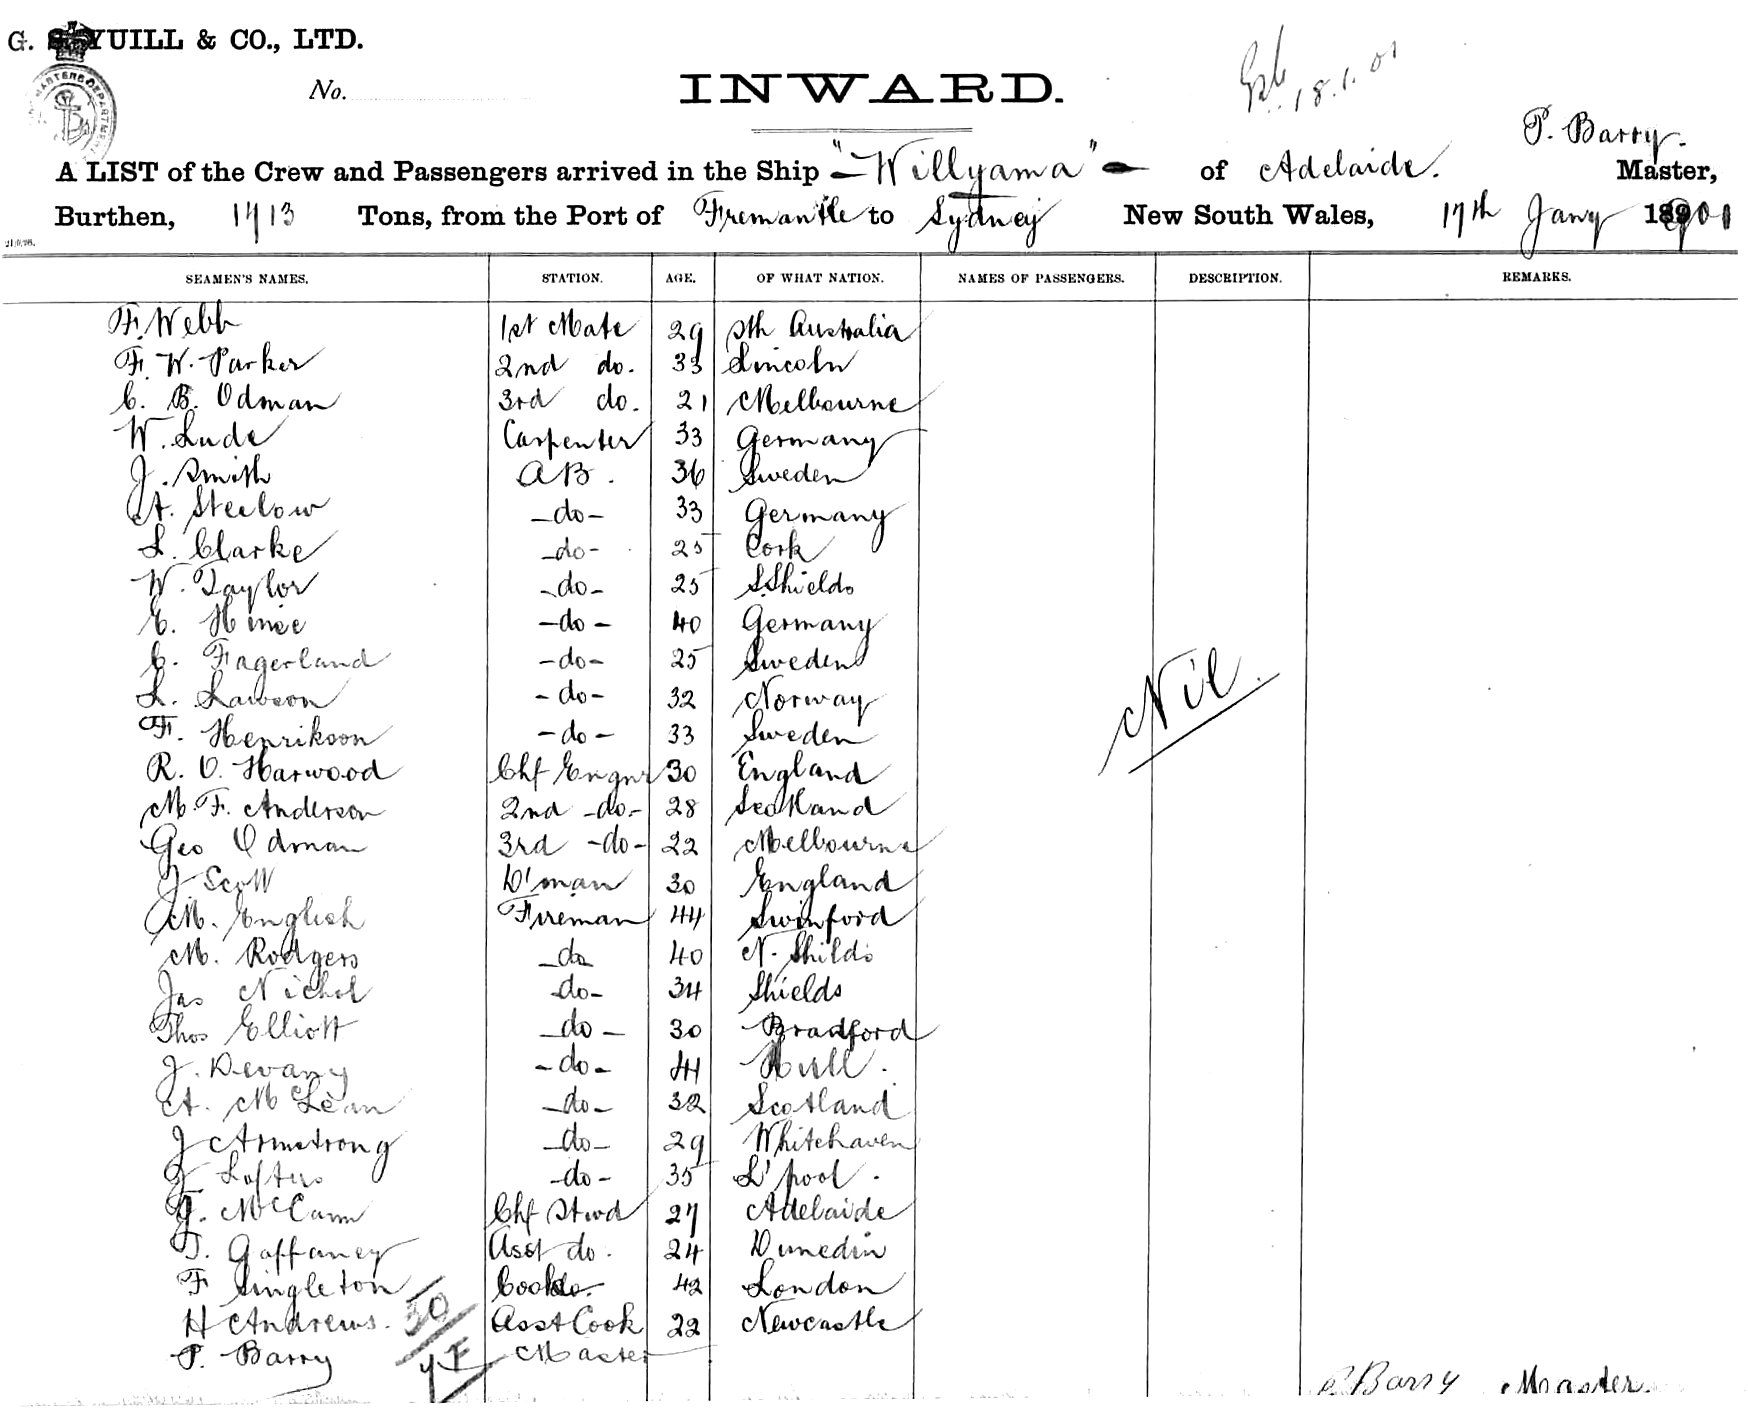 G. S. YUILL & CO., LTD.
No.
INWARD.
18.1.01
P. Barry.
A LIST of the Crew and Passengers arrived in the Ship "Willyama" of Adelaide. Master,
Burthen, 1713 Tons, from the Port of Fremantle to Sydney New South Wales, 17th Jany 1901
SEAMEN'S NAMES. STATION. AGE. OF WHAT NATION. NAMES OF PASSENGERS. DESCRIPTION. REMARKS.
F. Webb 1st Mate 29 Sth Australia
F. W. Parker 2nd do. 33 Lincoln
C. B. Odman 3rd do. 21 Melbourne
W. Lude Carpenter 33 Germany
J. Smith AB. 36 Sweden
A. Steelow -do- 33 Germany
L. Clarke -do- 25 Cork
W. Taylor -do- 25 S. Shields
E. -do- 40 Germany
C. Fagerland -do- 25 Sweden
L. Lawson -do- 32 Norway
F. Henrikson -do- 33 Sweden
R. O. Harwood Chf Engnr 30 England
M. F. Anderson 2nd -do- 28 Scotland
Geo Odman 3rd -do- 22 Melbourne
J Scott D'man 30 England
M. English Fireman 44 Swinford
M. Rodgers do 40 N. Shilds
Jas Nichol -do- 34 Shields
Thos Elliott -do- 30 Bradford
J. Devany -do- 41 Hull.
A. McLean -do- 32 Scotland
J Armstrong -do- 29 Whitehaven
J Loftus -do- 35 L'pool.
J. McCann Chf Stwd 27 Adelaide
T. Gaffaney Asst do. 24 Dunedin
F Singleton Cook 42 London
H Andrews. Asst Cook 22 Newcastle
P. Barry Master
Nil.
30
P Barry Master.